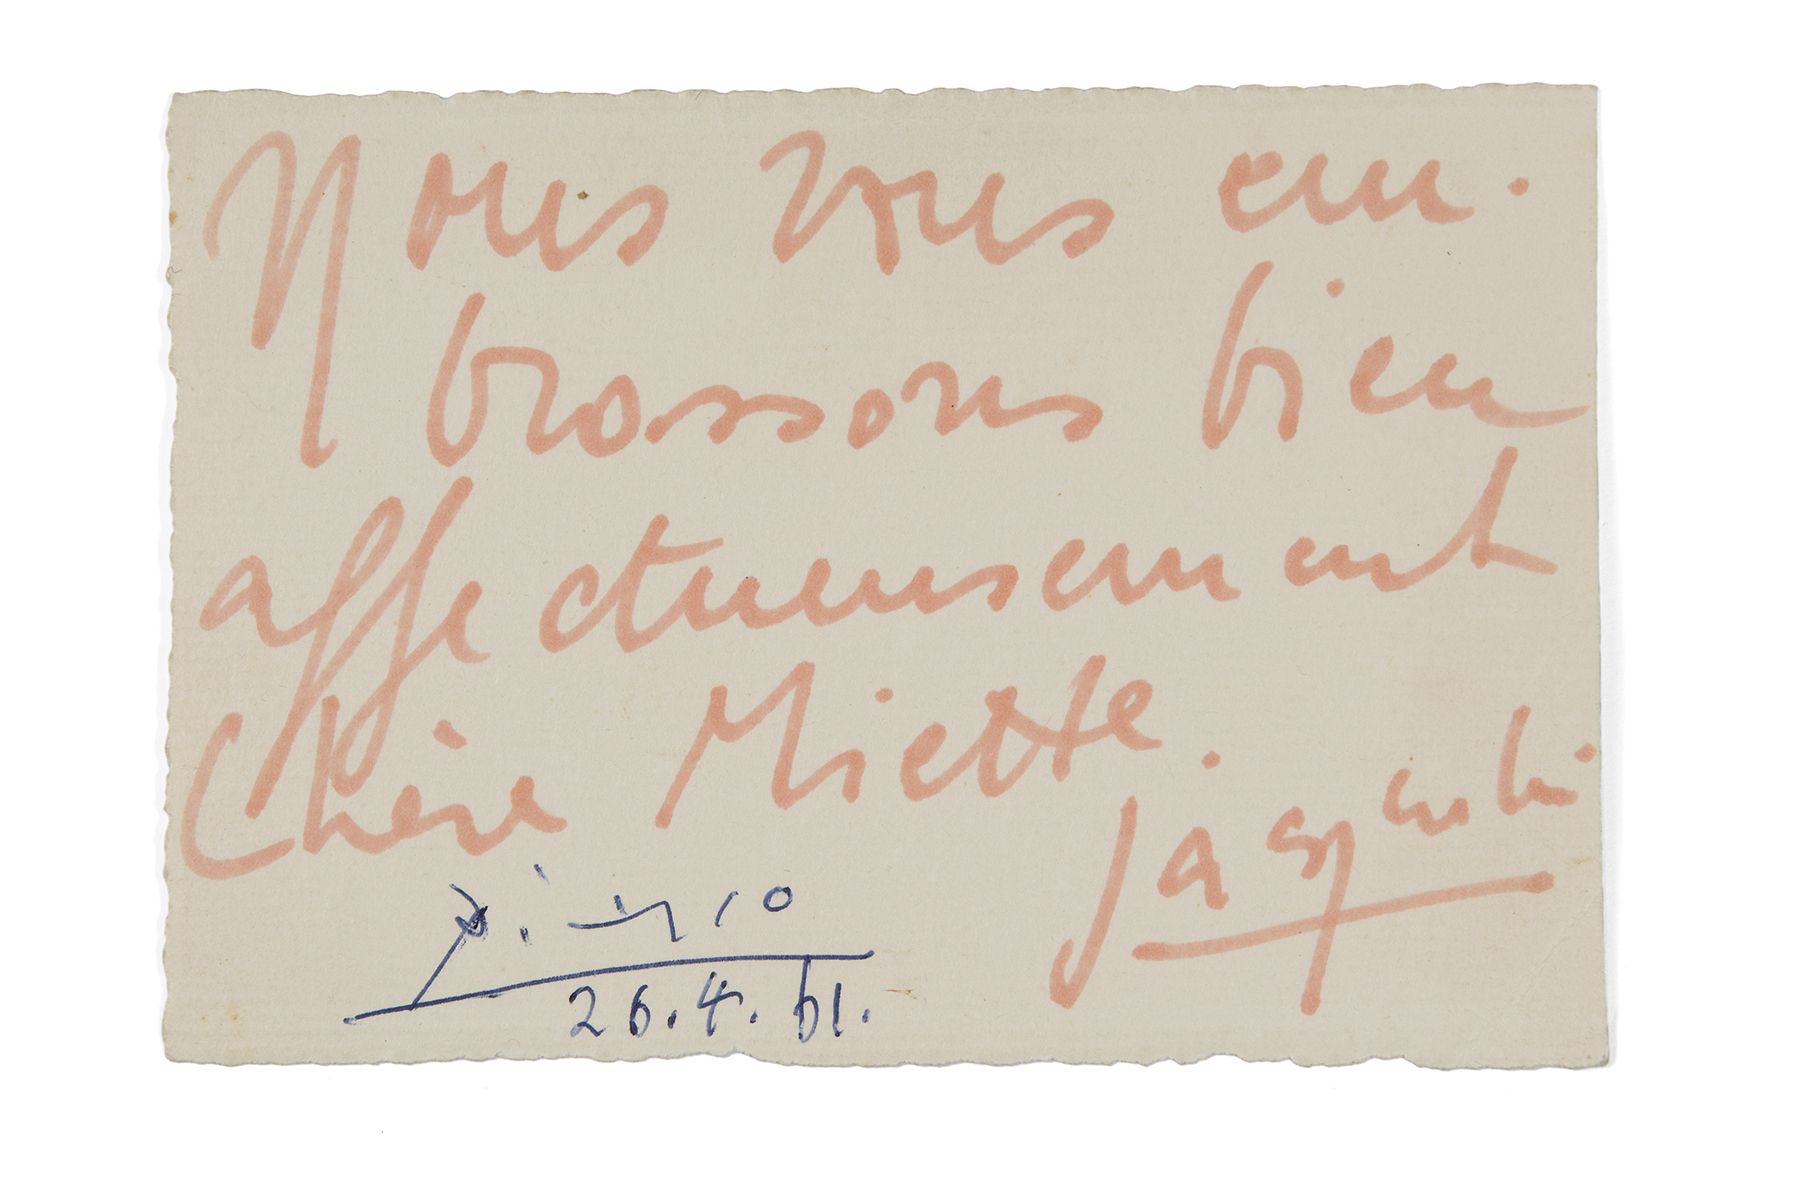 Nous vous em.
brassons bien
affectueusement
Chère Miette.
Jacqueline
Picasso
26.4.61.